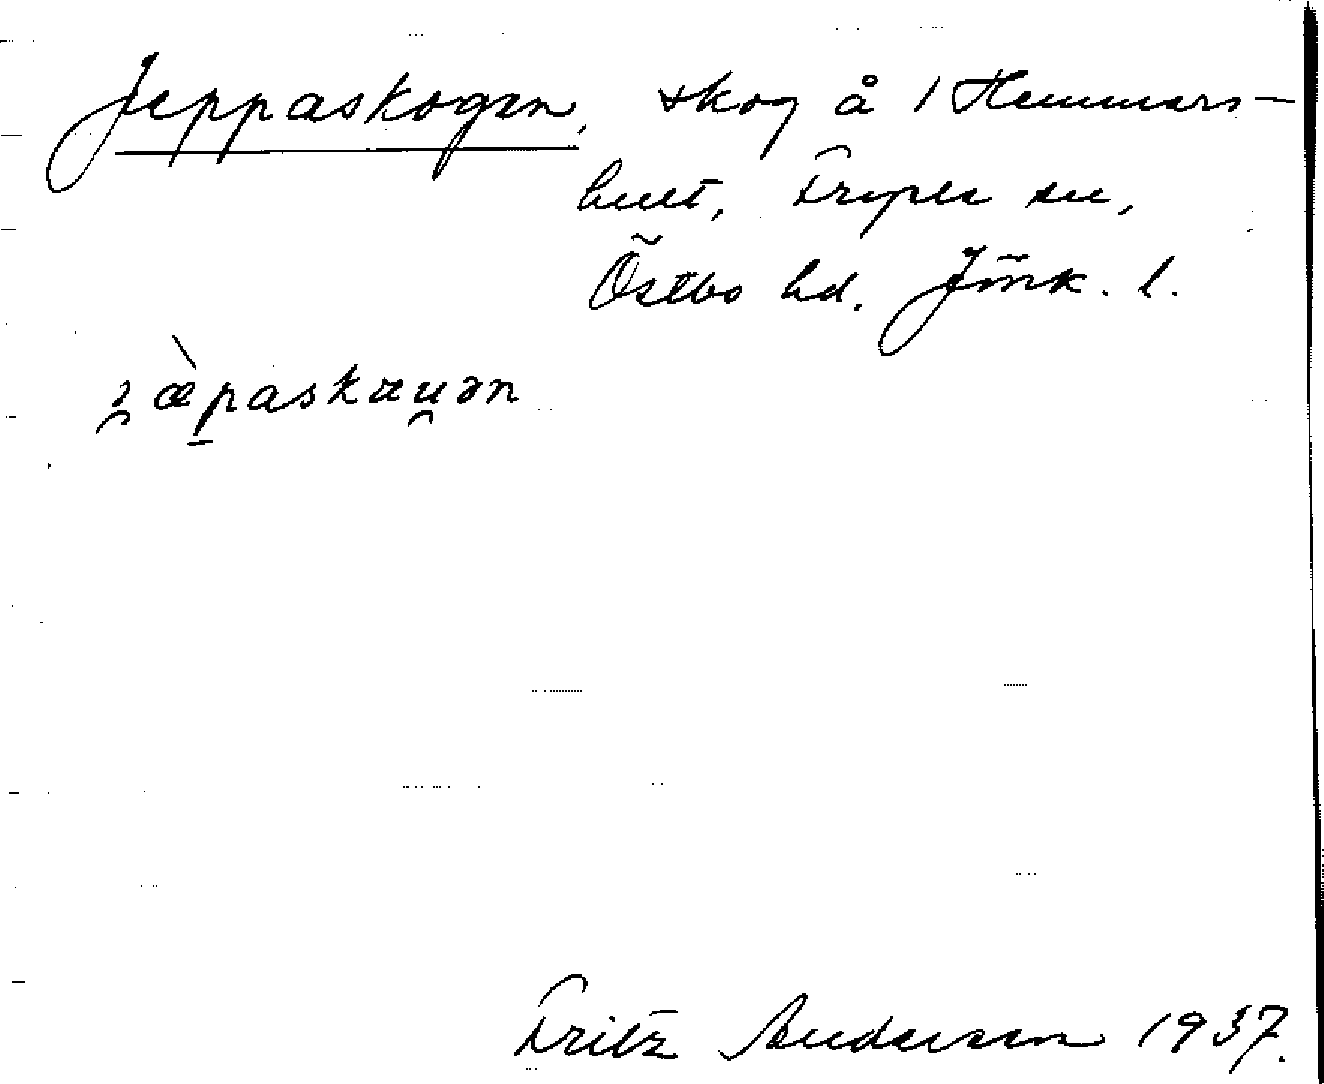 Jeppaskogen, skog å 1 Hemmars-
hult, Tryfls sn,
Östbo hd. Jönk. l.
ȷæ̀paskɑu̯ən
Fritz Andersson 1937.